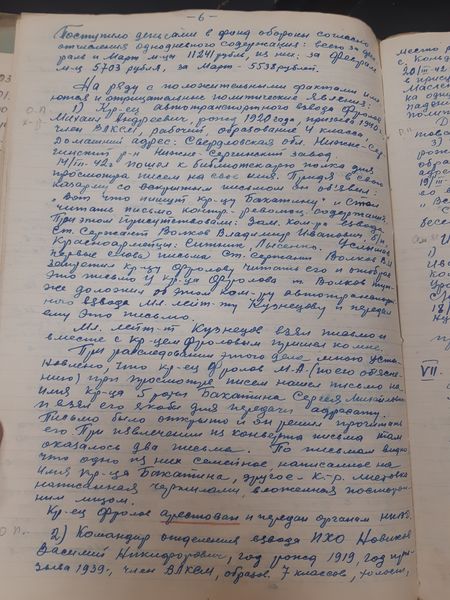 — 6 —
Поступило деньгами в фонд обороны согласно
отчисления однодневного содержания: всего за фев-
раль и Март м-цы 11241 рубл, из них: за февраль
м-ц 5703 рубля, за Март - 5538 рублей.
На ряду с положительными фактами име-
ются и отрицательные политические явления:
1) Кр-ец автотранспортного взвода Фролов
Михаил Андреевич, рожд 1920 года, призыва 1940 г.
член ВЛКСМ, рабочий, образование 4 класса
Домашний адрес: Свердловская обл. Нижне-Сер-
гинский р-н Нижне Сергинский завод
14/III-42 г. пошел к библиотекарю полка для
просмотра писем на свое имя. Придя в свою
казарму со вскрытым письмом он объявил:
"Вот что пишут кр-цу Бахатину" и стал
читать письмо контр-революц. содержания.
При этом присутствовали: Зам. ком-ра взвода
Ст. Сержант Волков Владимир Иванович, б/п,
Красноармейцы: Ситник, Лысенко. Услышав
первые слова письма Ст. Сержант Волков В.И
запретил кр-цу Фролову читать его и отобрав
это письмо у кр-ца Фролова т. Волков тут-
же доложил об этом ком-ру автотранспорт-
ного взвода Мл. лейт-ту Кузнецову и передал
ему это письмо.
Мл. лейт-т Кузнецов взял письмо и
вместе с кр-цем Фроловым пришел ко мне.
При расследовании этого дела мною уста-
новлено, что кр-ец Фролов М.А. (по его объясне-
нию) при просмотре писем нашел письмо на
имя кр-ца 5 роты Бахатина Сергея Михайловича
и взял его якобы для передачи адресату.
Письмо было открыто и он решил прочитать
его При извлечении из конверта письма там
оказалось два письма. По письмам видно
что одно из них семейное, написанное на
имя кр-ца Бахатина, другое - к-р. листовка
написанная чернилами, вложенная посторон-
ним лицом.
Кр-ец Фролов арестован и передан органам НКВД.
2) Командир отделения взвода ИХО Новиков
Василий Никифорович, год рожд 1919, год при-
зыва 1939-, член ВЛКСМ, образов. 7 классов, холост,
VII.